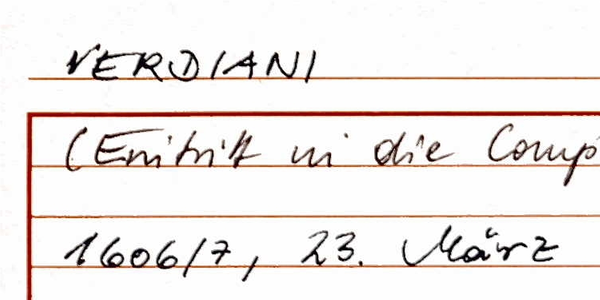 VERDIANI
(Eintritt in die Comp
1606/7, 23. März